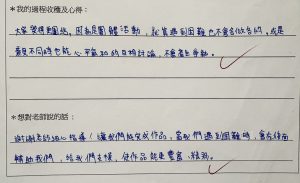 *我的過程收穫及心得：
大家變得更團結，因為是團體活動，就算遇到困難也不會去做自己的，或是
意見不同時也能心平氣和的互相討論，不會起爭執。
*想對老師說的話：
謝謝老師細心指導，讓我們能完成作品，當我們遇到困難時，會在後面
輔助我們，給我們支援，使作品能更豐富、精彩。